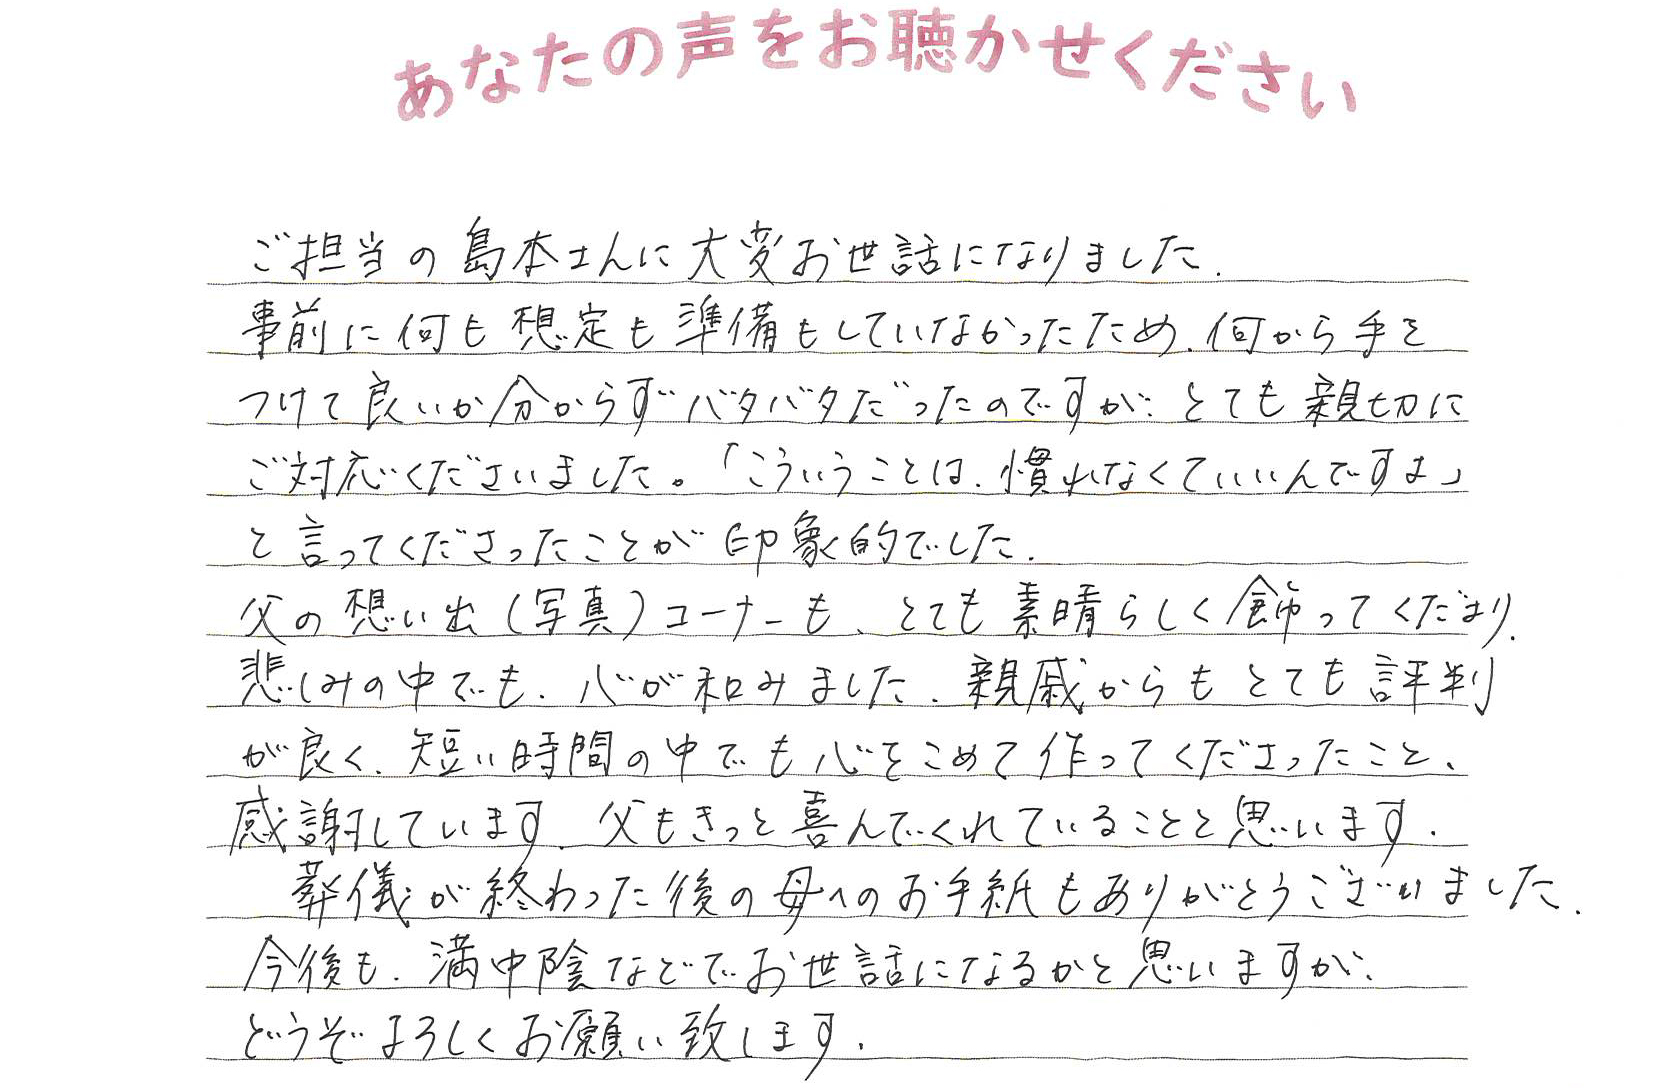 あなたの声をお聴かせください
ご担当の島本さんに大変お世話になりました.
事前に何も想定も準備もしていなかったため、何から手を
つけて良いか分からずバタバタだったのですが、とても親切に
ご対応くださいました。「こういうことは、慣れなくていいんですよ」
と言ってくださったことが印象的でした.
父の想い出(写真)コーナーも、とても素晴らしく飾ってくださり、
悲しみの中でも、心が和みました.親戚からもとても評判
が良く、短い時間の中でも心をこめて作ってくださったこと、
感謝しています.父もきっと喜んでくれていることと思います.
葬儀が終わった後の母へのお手紙もありがとうございました.
今後も、満中陰などでお世話になるかと思いますが、
どうぞよろしくお願い致します.